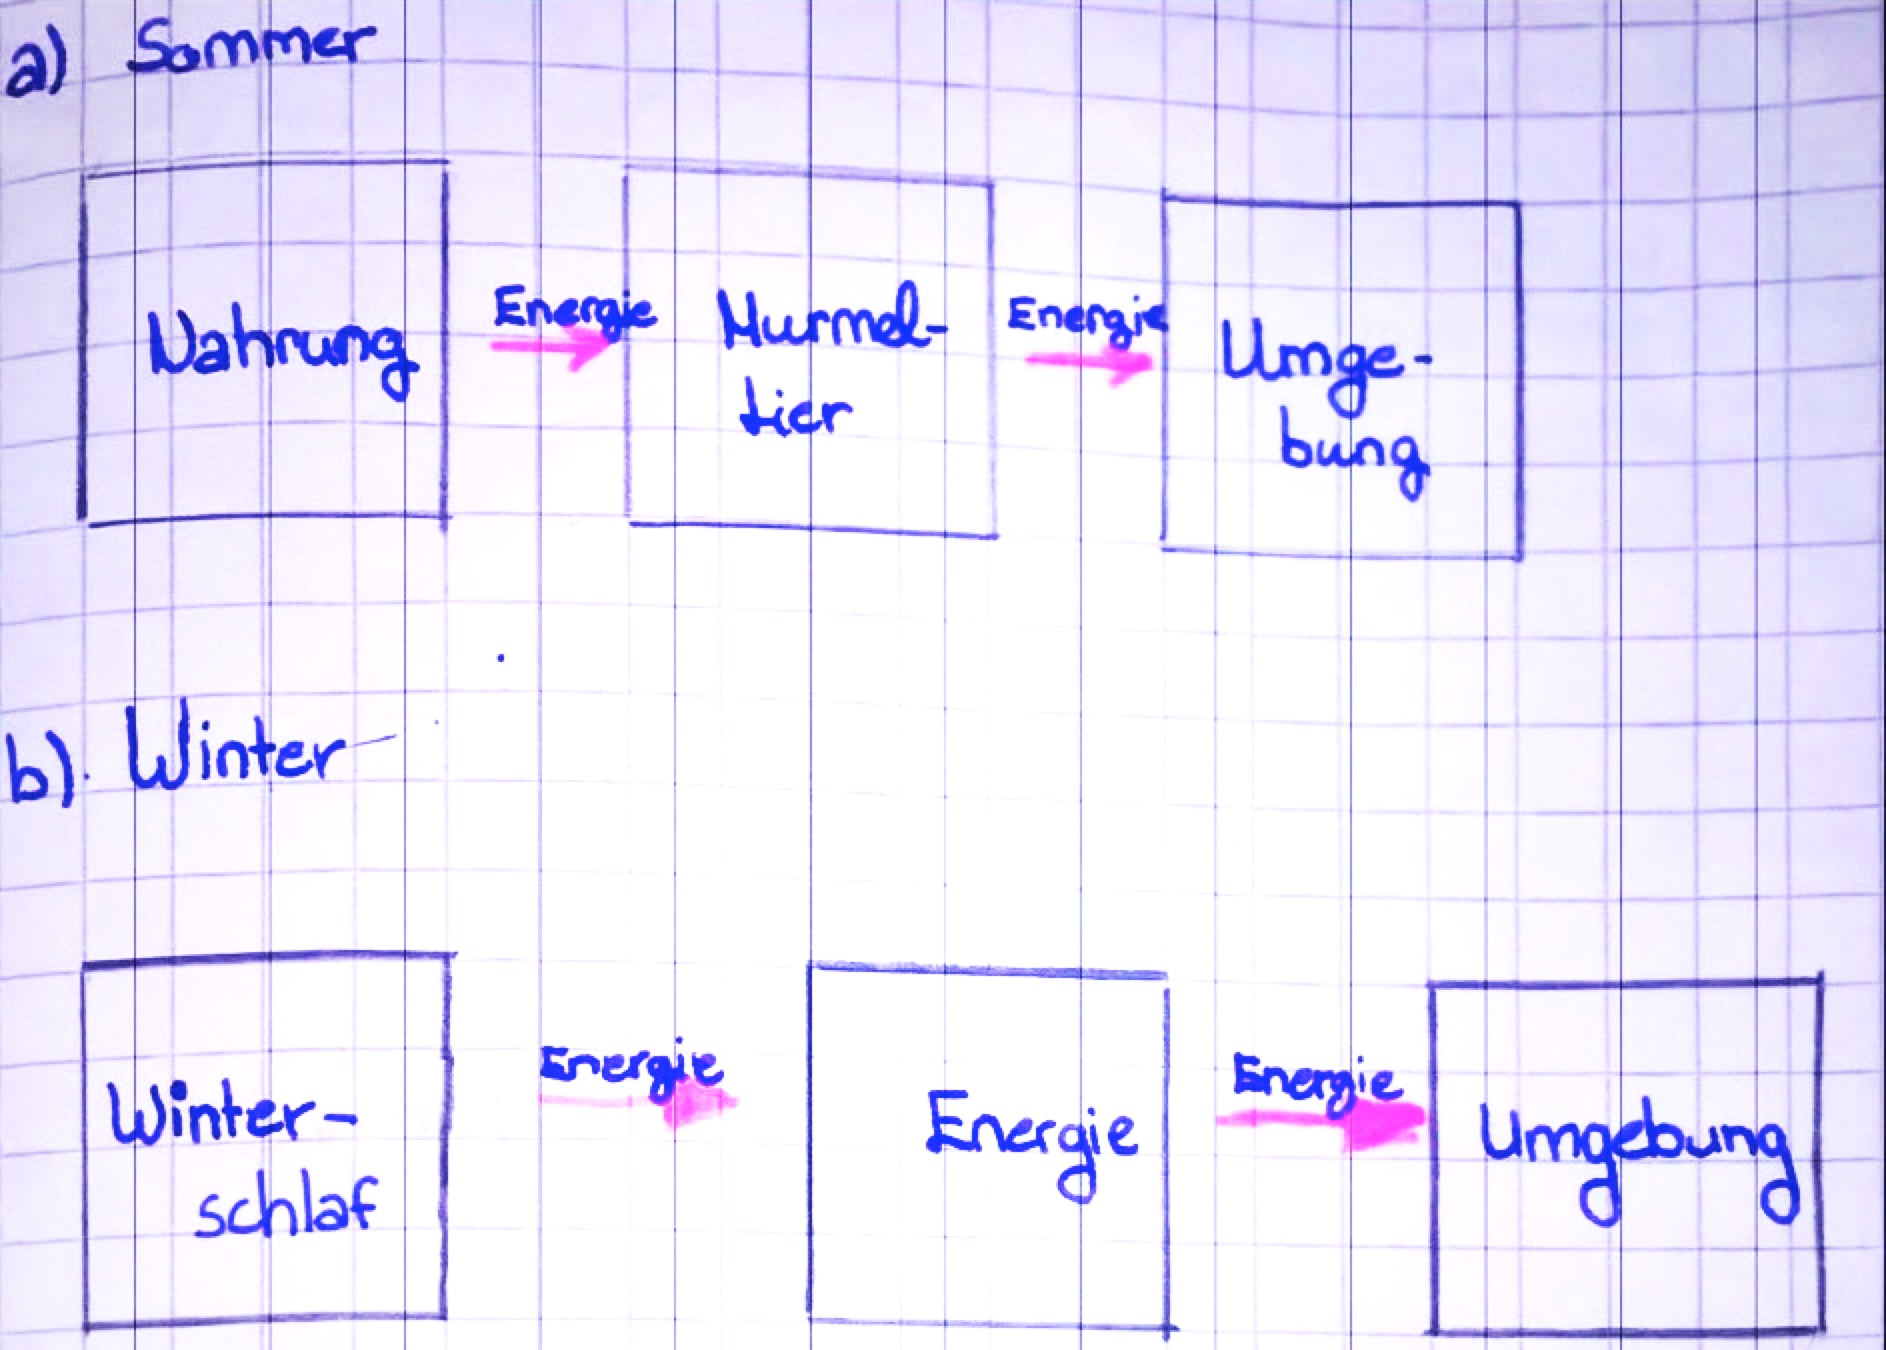 a) Sommer
Nahrung
Energie
Murmel-
tier
Energie
Umge-
bung
b) Winter
Winter-
schlaf
Energie
Energie
Energie
Umgebung